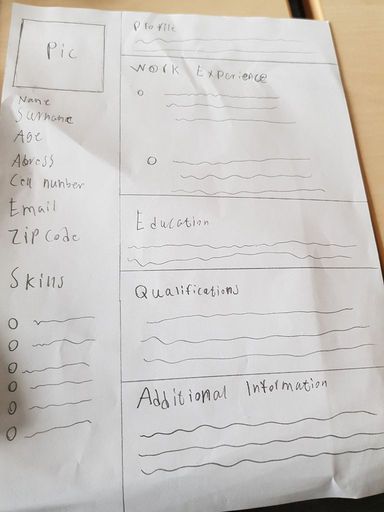 Pic
Name
Surname
Age
Adress
Cell number
Email
Zip Code
Skills
Profile
Work Experience
Education
Qualifications
Additional Information